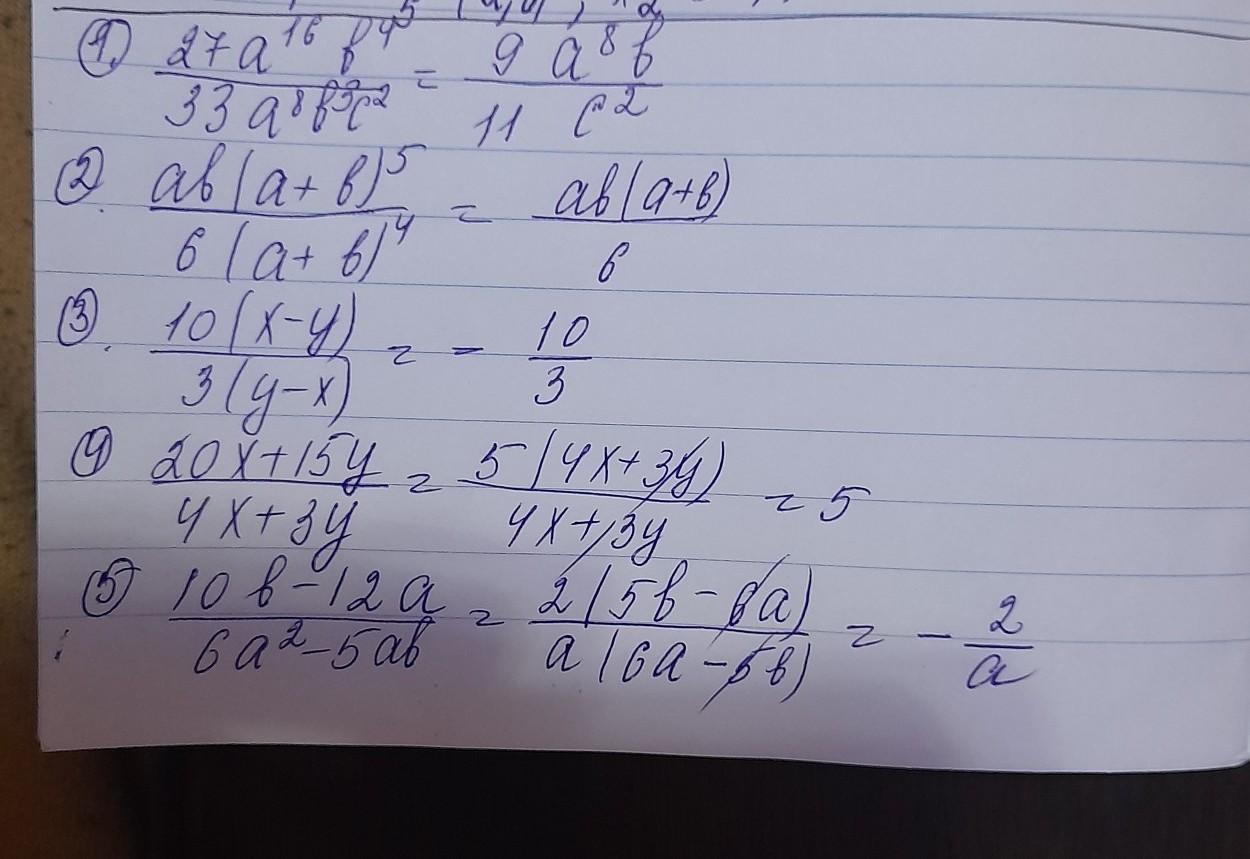 ① 27a¹⁶ b⁴ / 33a⁸b³c² = 9 a⁸ b / 11 c²
② ab(a+b)⁵ / 6(a+b)⁴ = ab(a+b) / 6
③. 10(x-y) / 3(y-x) = - 10 / 3
④ 20x+15y / 4x+3y = 5(4x+3y) / 4x+3y = 5
⑤ 10b-12a / 6a²-5ab = 2(5b-6a) / a(6a-5b) = - 2 / a